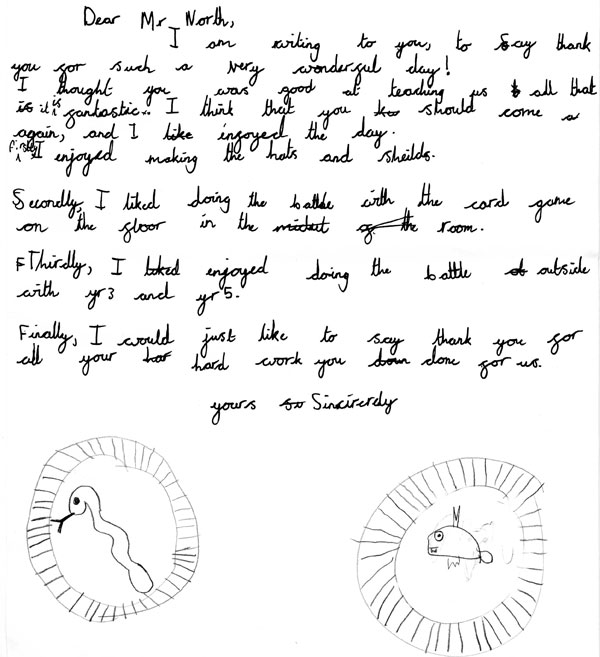 Dear Mr North,
I am writing to you, to say thank
you for such a very wonderful day!
I thought you was good at teaching us all that
it is fantastic.. I think that you should come
again, and I injoyed the day.
firstly I enjoyed making the hats and sheilds.
Secondly, I liked doing the battle with the card game
on the floor in the room.
Thirdly, I enjoyed doing the battle outside
with yr3 and yr5.
Finally, I would just like to say thank you for
all your hard work you done for us.
yours Sincirerdy